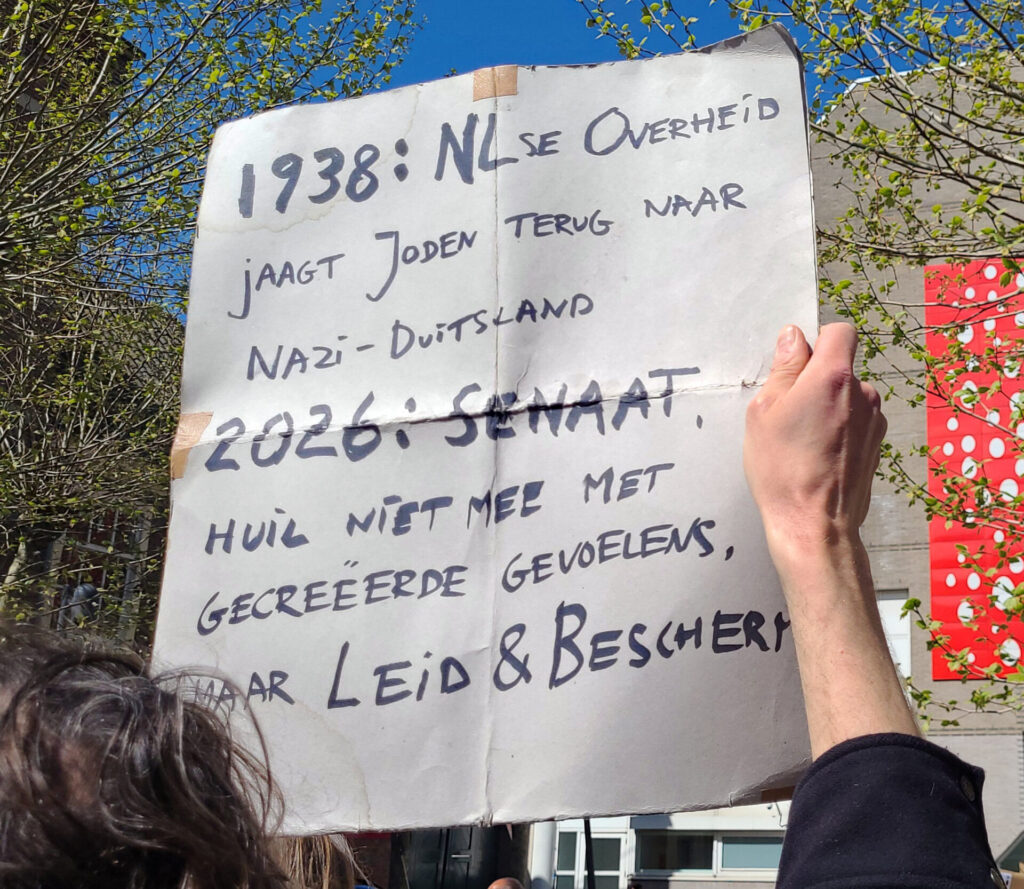 1938: NLSE OVERHEID
JAAGT JODEN TERUG NAAR
NAZI-DUITSLAND
2026: SENAAT,
HUIL NIET MEE MET
GECREËERDE GEVOELENS,
MAAR LEID & BESCHERM